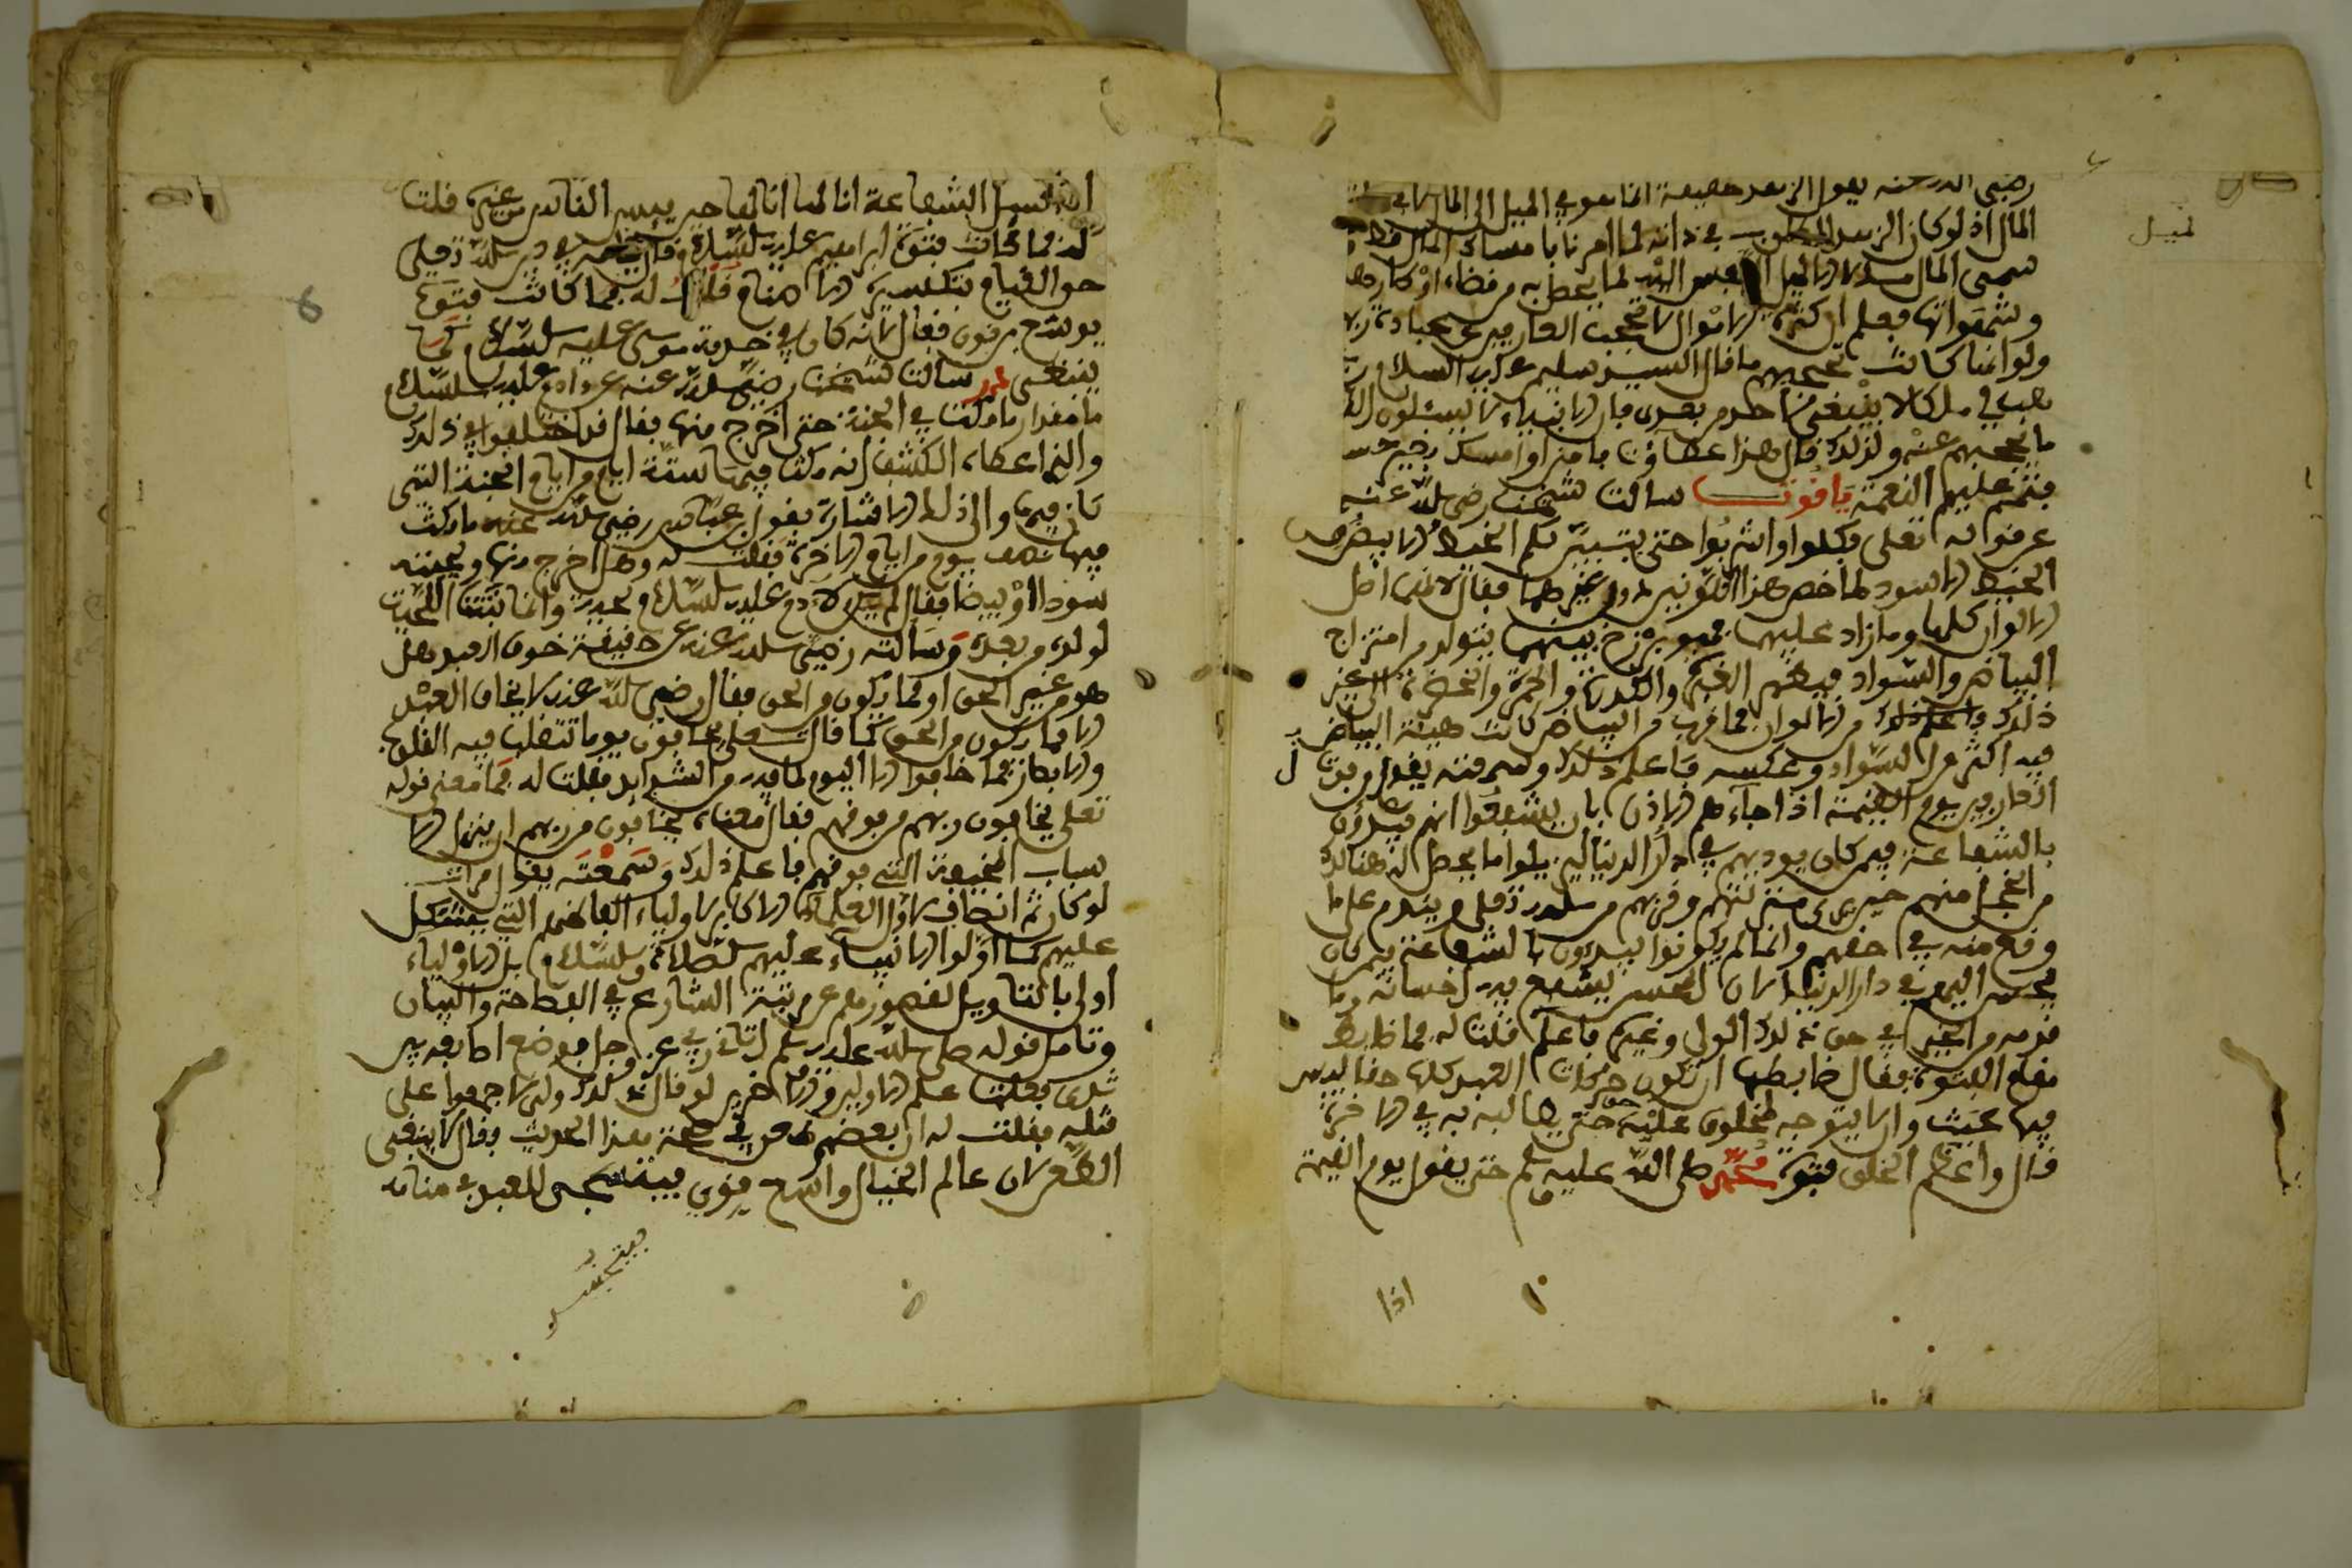 رضي الله عنه يقول الزهد حقيقة انما هو في الميل الى المال لا في
المال اذ لو كان الزهد المطلوب في ذاته لما امرنا بامساك المال
سمى المال مالا الا لميل النفس اليه لما يحصل به من قضاء اوطارها
وشهواتها فعلم ان كثرة الاموال لا تحجب العارفين عن عبادة ربهم
ولو انها كانت تحجبهم ما قال السيد سليمن عليه السلام رب
هب لي ملكا لا ينبغي لاحد من بعدي فان الانبياء لا يسئلون الله
ما يحجبهم عنه ولذلك قال هذا عطاؤنا فامنن او امسك بغير حساب
فتتم عليهم النعمة ياقوت سالت شيخنا رضي الله عنه
عن قوله تعلى وكلوا واشربوا حتى يتبين لكم الخيط الابيض من
الخيط الاسود لما خص هذا اللونين دون غيرهما فقال لانهما اصل
الالوان كلها وما زاد عليها فهو برزخ بينهما يتولد من امتزاج
البياض والسواد فيظهر الغبرة والكدرة والحمرة والخضرة الى غير
ذلك من الالوان فما قرب من البياض كانت هيئة البياض
فيه اكثر من السواد وعكسه فاعلم ذلك وسمعته يقول من دناءة
العارفين يوم القيمة اذا جاءهم الاذن بان يشفعوا انهم يبدؤن
بالشفاعة فيمن كان يوذيهم في دار الدنيا ليزيلوا ما يحصل له هنالك
من الخجل منهم حين يرى منزلتهم وقربهم من الله تعلى ويندم على ما
وقع منه في حقهم وانما لم يكونوا يبدؤن بالشفاعة فيمن كان
يحسن اليهم في دار الدنيا لان المحسن يشفع فيه احسانه وما
قدمه من الخير في حق ذلك الولي وغيره فاعلم قلت له فما ضابط
مقام الفتوة فقال ضابطها ان تكون حركات العبد كلها حقا ليس
فيها عبث ولا يتوجه لمخلوق عليه حق يطالبه به في الاخرة
قال واعظم الخلق فتوة محمد صلى الله عليه وسلم حتى يقول يوم القيمة
اذا
لميل
اذا سئل الشفاعة انا لها انا لها حين ييئس الناس من غيره قلت
له فما كانت فتوة ابراهيم عليه السلام فقال قيامه في دين الله تعلى
حق القيام بتكسيره الاصنام قلت له فما كانت فتوة
يوشع بن نون فقال لانه كان في خدمة موسى عليه السلام كما
ينبغي درر سالت شيخنا رضي الله عنه عن ادم عليه السلام
ما مقدار ما مكث في الجنة حتى اخرج منها فقال قد اختلفوا في ذلك
والذي اعطاه الكشف انه مكث فيها ستة ايام من ايام الجنة التي
كان فيها والى ذلك الاشارة بقول ابن عباس رضي الله عنه ما مكث
فيها نصف يوم من ايام الاخرة فقلت له وهل اخرج منها ولحيته
سودا او بيضا فقال لم يكن لادم عليه السلام لحية وانما نبتت اللحية
لولده من بعده وسالته رضي الله عنه عن حقيقة خوف العبد هل
هو من غير الحق او مما يكون من الحق فقال رضي الله عنه لا يخاف العبد
الا مما يكون من الحق كما قال تعلى يخافون يوما تتقلب فيه القلوب
والابصار فما خافوا الا اليوم لما فيه من الشدايد فقلت له فما معنى قوله
تعلى يخافون ربهم من فوقهم فقال معناه يخافون من ربهم ان ينزل الا
سباب المخيفة التي فوقهم فاعلم ذلك وسمعته يقول مرات
لو كان ثم انصاف لاول العلماء للاكابر الاولياء الفاظهم التي تشكل
عليهم كما اولوا للانبياء عليهم الصلاة والسلام بل الاولياء
اولى بالتاويل لقصورهم عن مرتبة الشارع في الفصاحة والبيان
وتامل قوله صلى الله عليه وسلم اتاني ربي عز وجل فوضع اصابعه بين
ثديي فعلمت علم الاولين والاخرين لو قال ذلك ولي لاجمعوا على
قتله فقلت له ان بعضهم طعن في صحة هذا الحديث فقال لا ينبغي
الطعن لان عالم الخيال واسع يرى فيه العبد في منامه